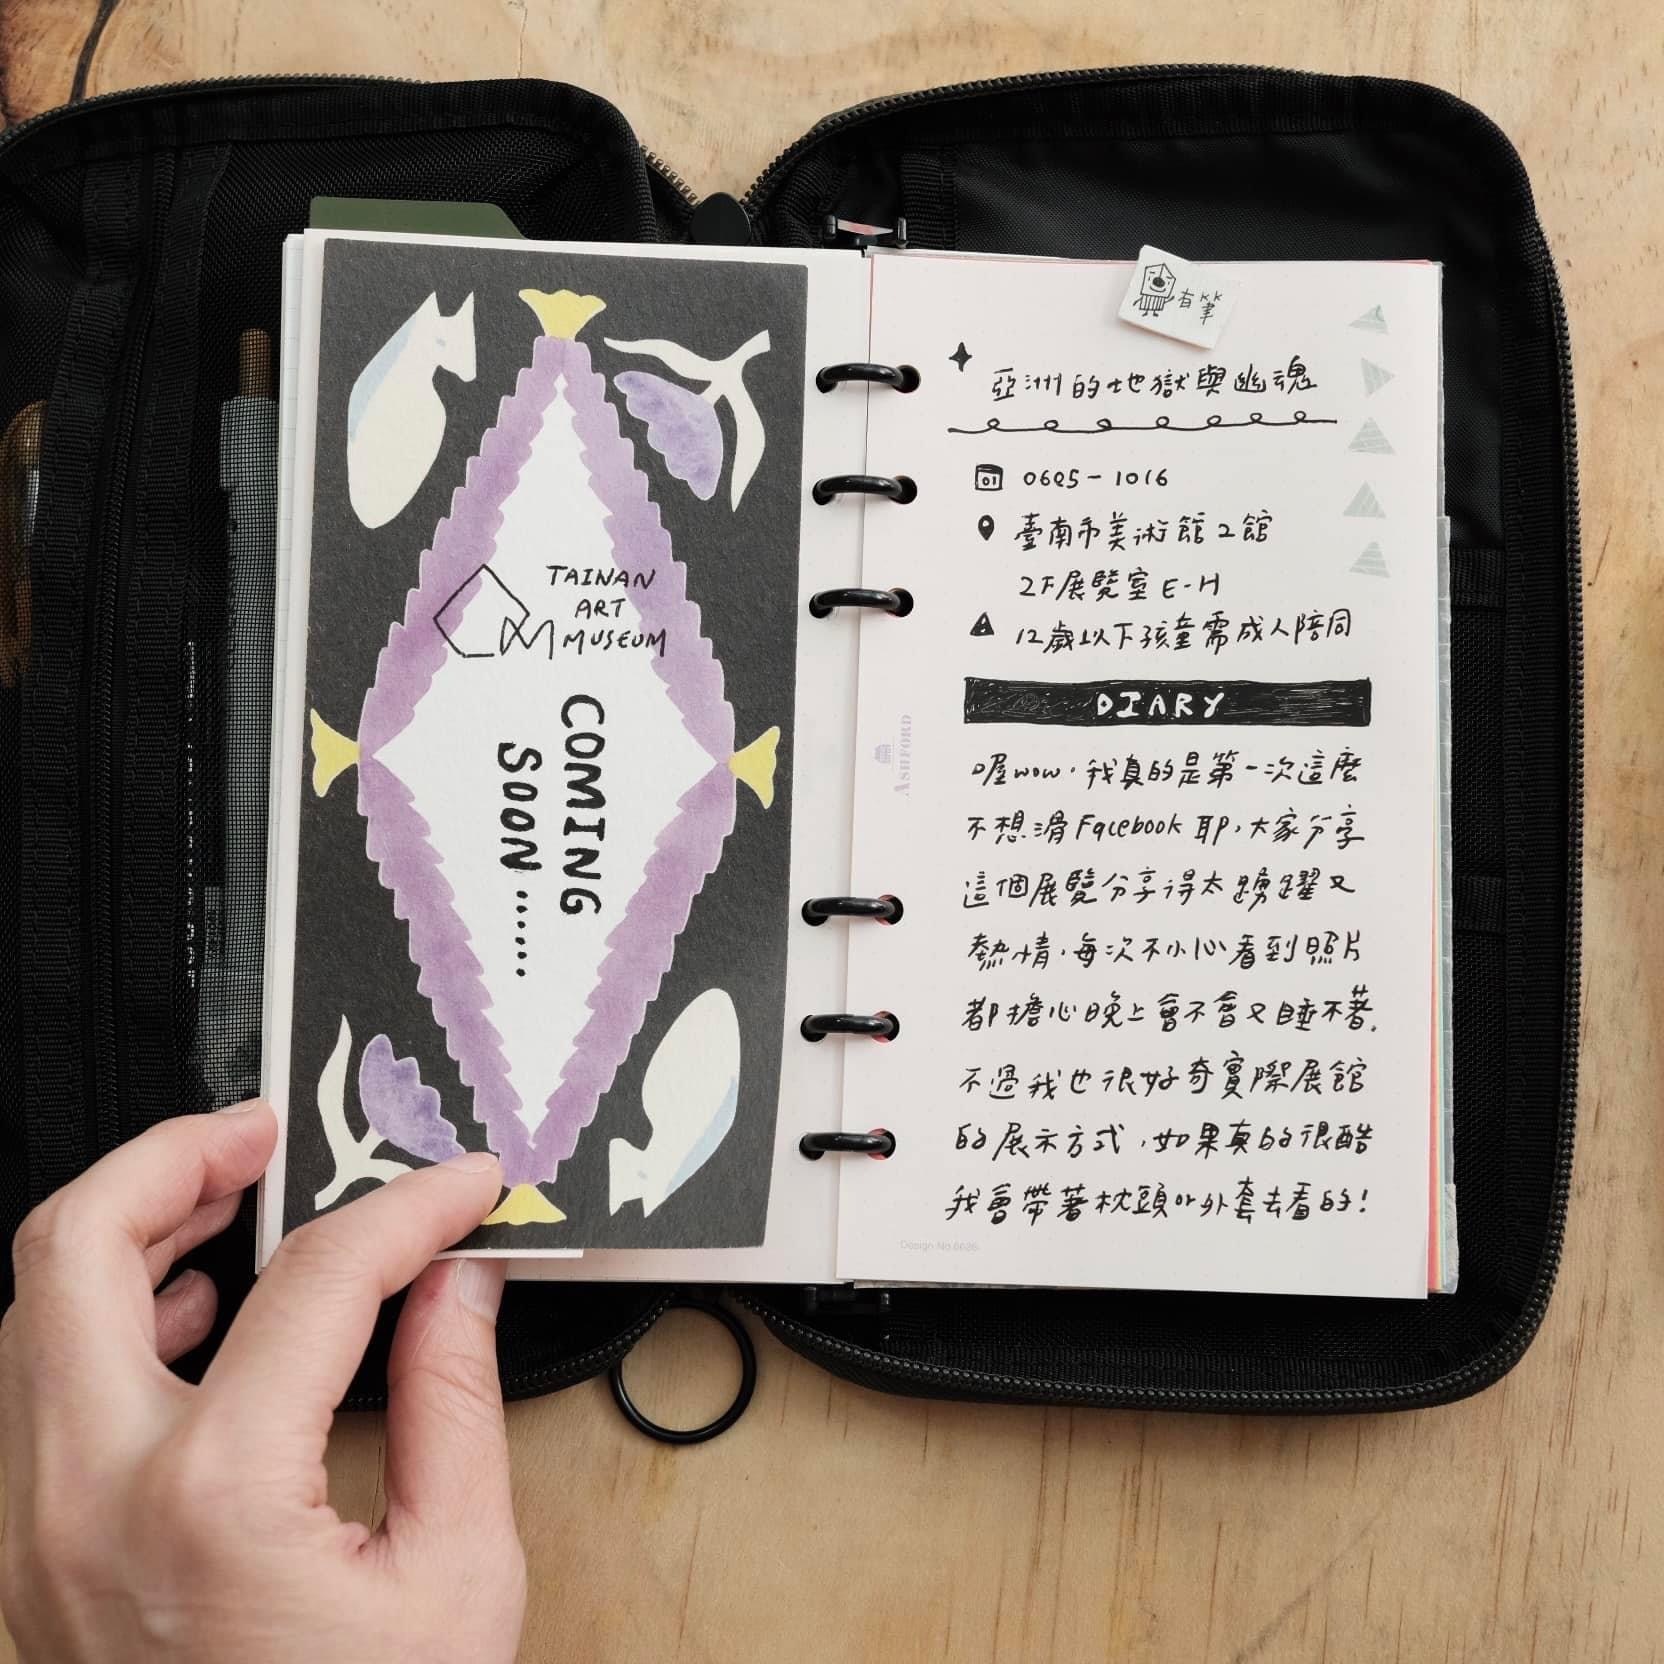 TAINAN
ART
MUSEUM
COMING
SOON......
有筆
亞洲的地獄與幽魂
01 0625-1016
臺南市美術館2館
2F展覽室E-H
12歲以下孩童需成人陪同
DIARY
喔wow，我真的是第一次這麼
不想滑Facebook耶，大家分享
這個展覽分享得太踴躍又
熱情，每次不小心看到照片
都擔心晚上會不會又睡不著。
不過我也很好奇實際展館
的展示方式，如果真的很酷
我會帶著枕頭or外套去看的！
ASHFORD
Design No.6626